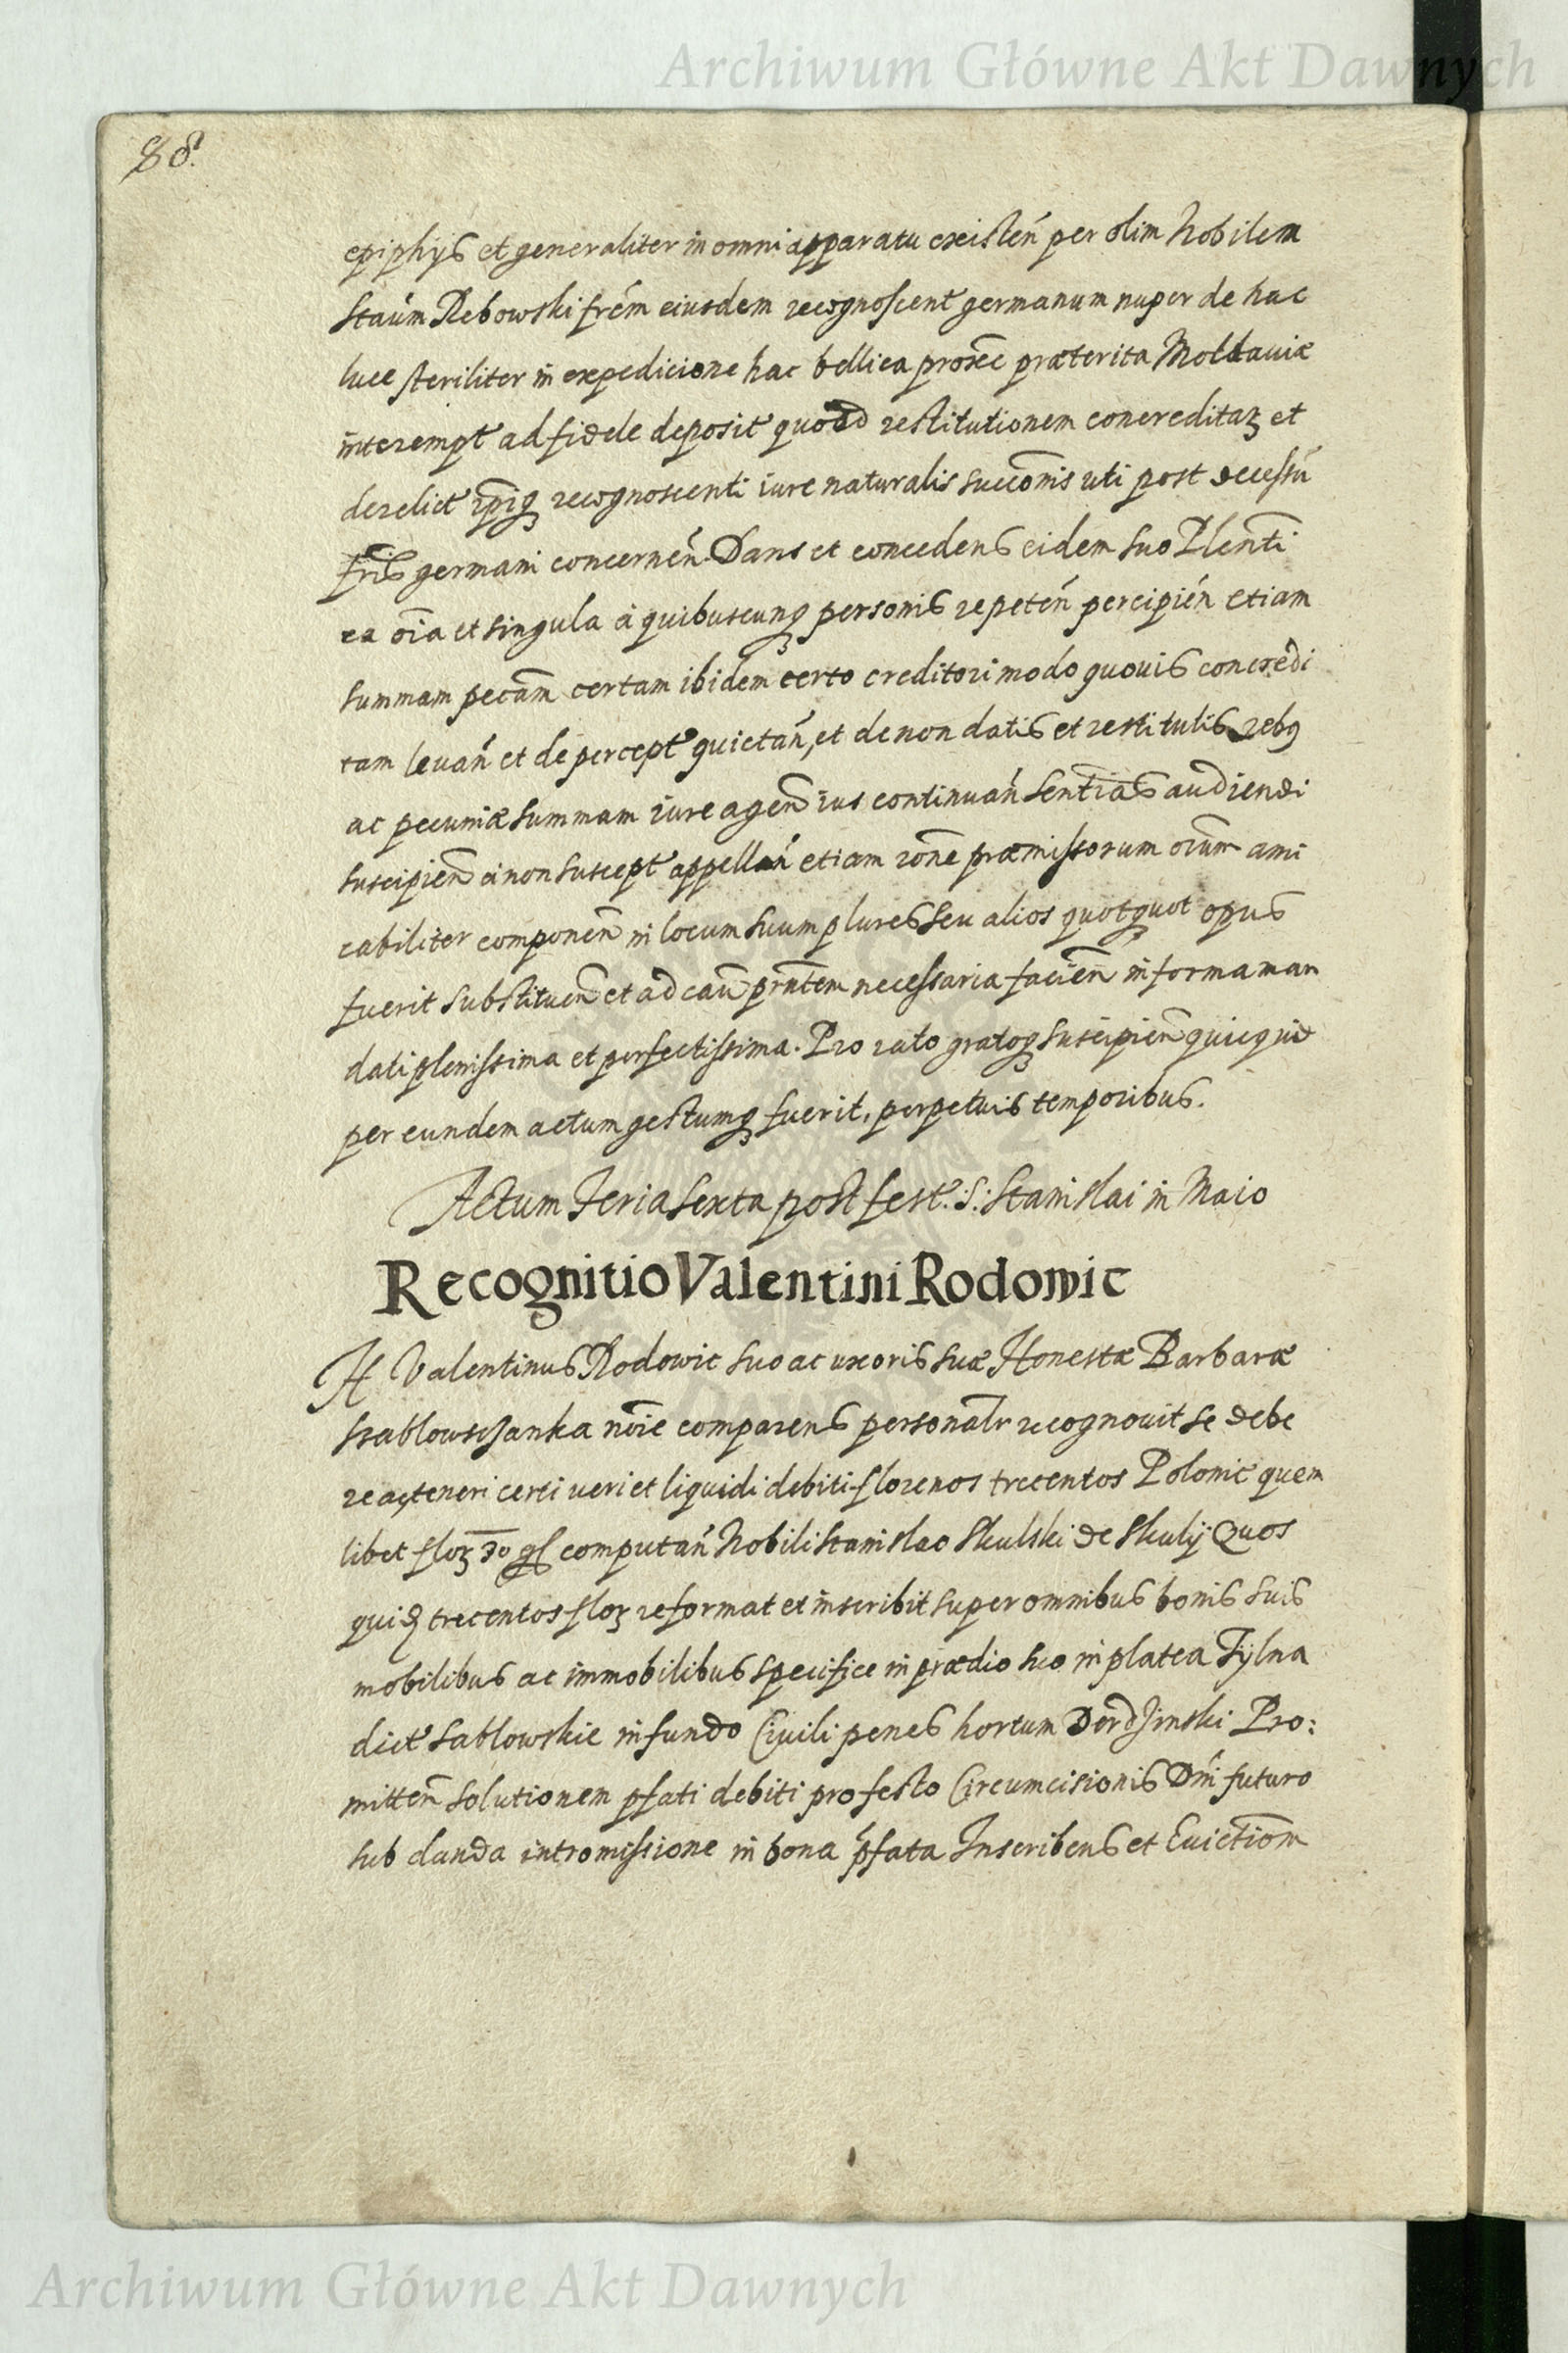 Archiwum Główne Akt Dawnych
88.
epiphijs et generaliter in omni apparatu existeń per olim Nobilem
Staum̃ Rebowski frẽm eiusdem recognoscent germanum nuper de hac
luce steriliter in expedicione hac bellica proxẽ præterita Moldauiæ
interempt ad fidele deposit quoad restitutionem concreditaꝝ et
derelict recognoscenti iure naturalis succõnis uti post decessũ
fris̃ germani concerneń. Dans et concedens eidem suo Plenti
ea oĩa et singula a quibuscunqꝫ personis repeteń percipień etiam
summam pecãm certam ibidem certo creditori modo quouis concredi
tam leuań et de percept quietań, et de non datis et restitutis rebꝰ
ac pecuniæ summam iure ageñ ius continuań Sentĩas audiendi
suscipieñ a non suscept appellań etiam rõne præmissorum oĩum ami
cabiliter componeñ in locum suum plures seu alios quotquot opus
fuerit substitueñ et ad cau᷉ prñtem necessaria facień in forma man
dati plenissima et perfectissima. Pro rato gratoqꝫ suscipieñ quicquid
per eundem actum gestumqꝫ fuerit, perpetuis temporibus.
Actum Feria sexta post fest: S: Stanislai in Maio
Recognitio Valentini Rodowic
H Valentinus Rodowic suo ac uxoris suæ Honestæ Barbaræ
nõie comparens personalr̃ recognouit se debe
re ac teneri certi ueri et liquidi debiti florenos trecentos Polonic quem
libet floꝝ 30 gſ computań Nobili Stanislao Skulski de Skulij Quos
quid trecentos floꝝ reformat et inscribit super omnibus bonis suis
mobilibus ac immobilibus specifice in prædio suo in platea Tÿlna
dict Sablowskie in fundo Ciuili penes hortum Pro:
mitteñ solutionem pfati debiti pro festo Circumcisionis Dńi futuro
sub danda intromissione in bona pfata Inscribens et Euictiom̃
Archiwum Główne Akt Dawnych